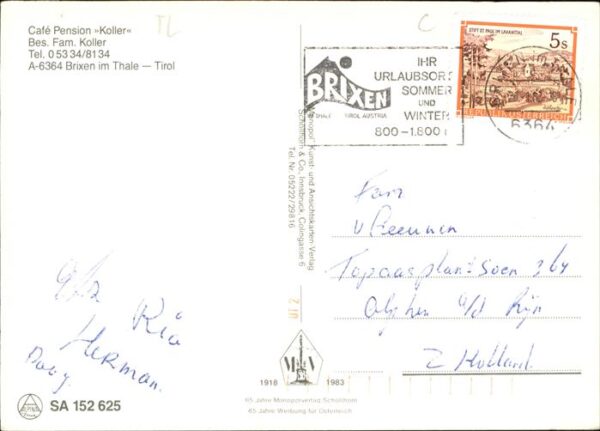 Café Pension »Koller«
Bes. Fam. Koller
Tel. 0 53 34/81 34
A-6364 Brixen im Thale — Tirol
TL
C
STIFT ST. PAUL IM LAVANTTAL
5s
REPUBLIK ÖSTERREICH
6364
BRIXEN
IM THALE TIROL AUSTRIA
IHR
URLAUBSORT
SOMMER
UND
WINTER
800–1.800
Monopol Kunst- und Ansichtskarten-Verlag
Schöllhorn & Co., Innsbruck, Colingasse 6
Tel. Nr. 05222/29816
Fam
v Beeunen
Topaasplantsoen 364
Alphen a/d Rijn
Z Holland
Ria
Herman
1918 1983
65 Jahre Monopolverlag Schöllhorn
65 Jahre Werbung für Österreich
SA 152 625